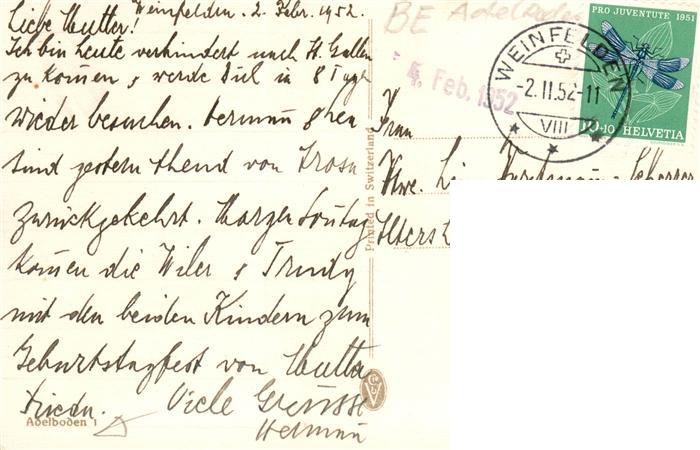 Weinfelden. 2. Febr. 1952.
Liebe Mutter!
Ich bin heute verhindert nach St. Gallen
zu kommen, werde Dich in 8 Tage
wieder besuchen. Herman &
sind gestern Abend von Arosa
zurückgekehrt. Morgen Sonntag
kommen die Wiler & Trudy
mit den beiden Kindern zum
Geburtstagfest von Mutter
Viele Grüsse
Herman
Adelboden 1
Printed in Switzerland
BE Adelboden
4. Feb. 1952
WEINFELDEN
-2.II.52-11
VIII
PRO JUVENTUTE 1951
10+10 HELVETIA
Frau
Wwe.